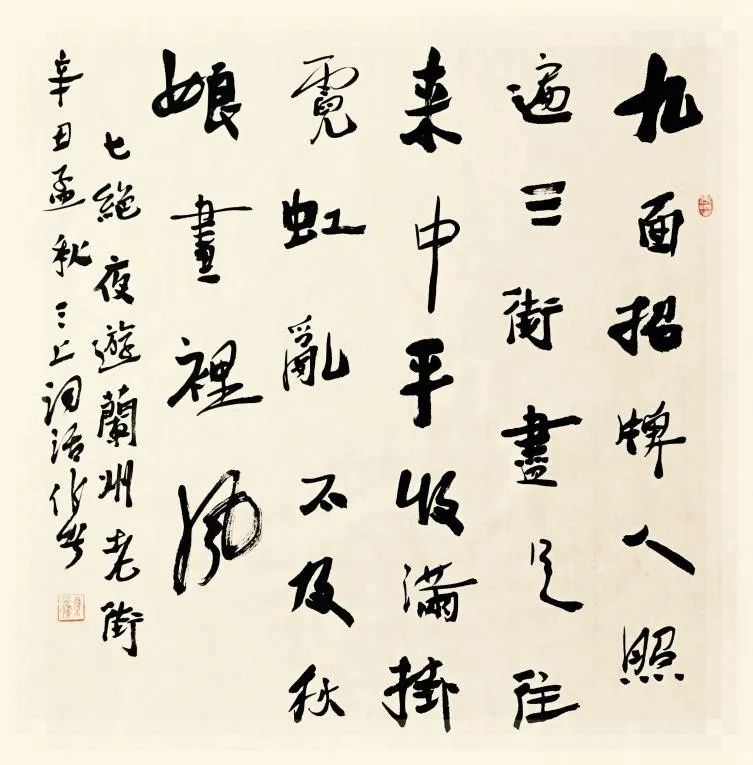 九面招牌人照
遍三街盡是往
来中平收滿掛
霓虹亂不及秋
娘畫裡風
七絕 夜遊蘭州老街
辛丑孟秋三上詞